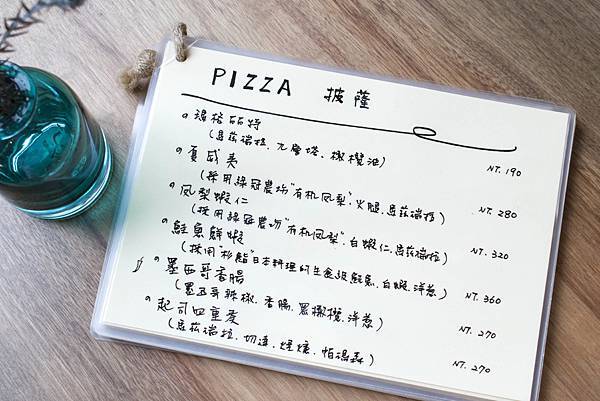 PIZZA 披薩
瑪格麗特
(馬茲瑞拉、九層塔、橄欖油) NT. 190
夏威夷
(採用綠冠農場"有机鳳梨"、火腿、馬茲瑞拉) NT. 280
鳳梨蝦仁
(採用綠冠農場"有机鳳梨"、白蝦仁、馬茲瑞拉) NT. 320
鮭魚鮮蝦
(採用"杉鮨"日本料理的生食級鮭魚、白蝦、洋蔥) NT. 360
墨西哥香腸
(墨西哥辣椒、香腸、黑橄欖、洋蔥) NT. 270
起司四重奏
(馬茲瑞拉、切達、煙燻、帕瑪森) NT. 270